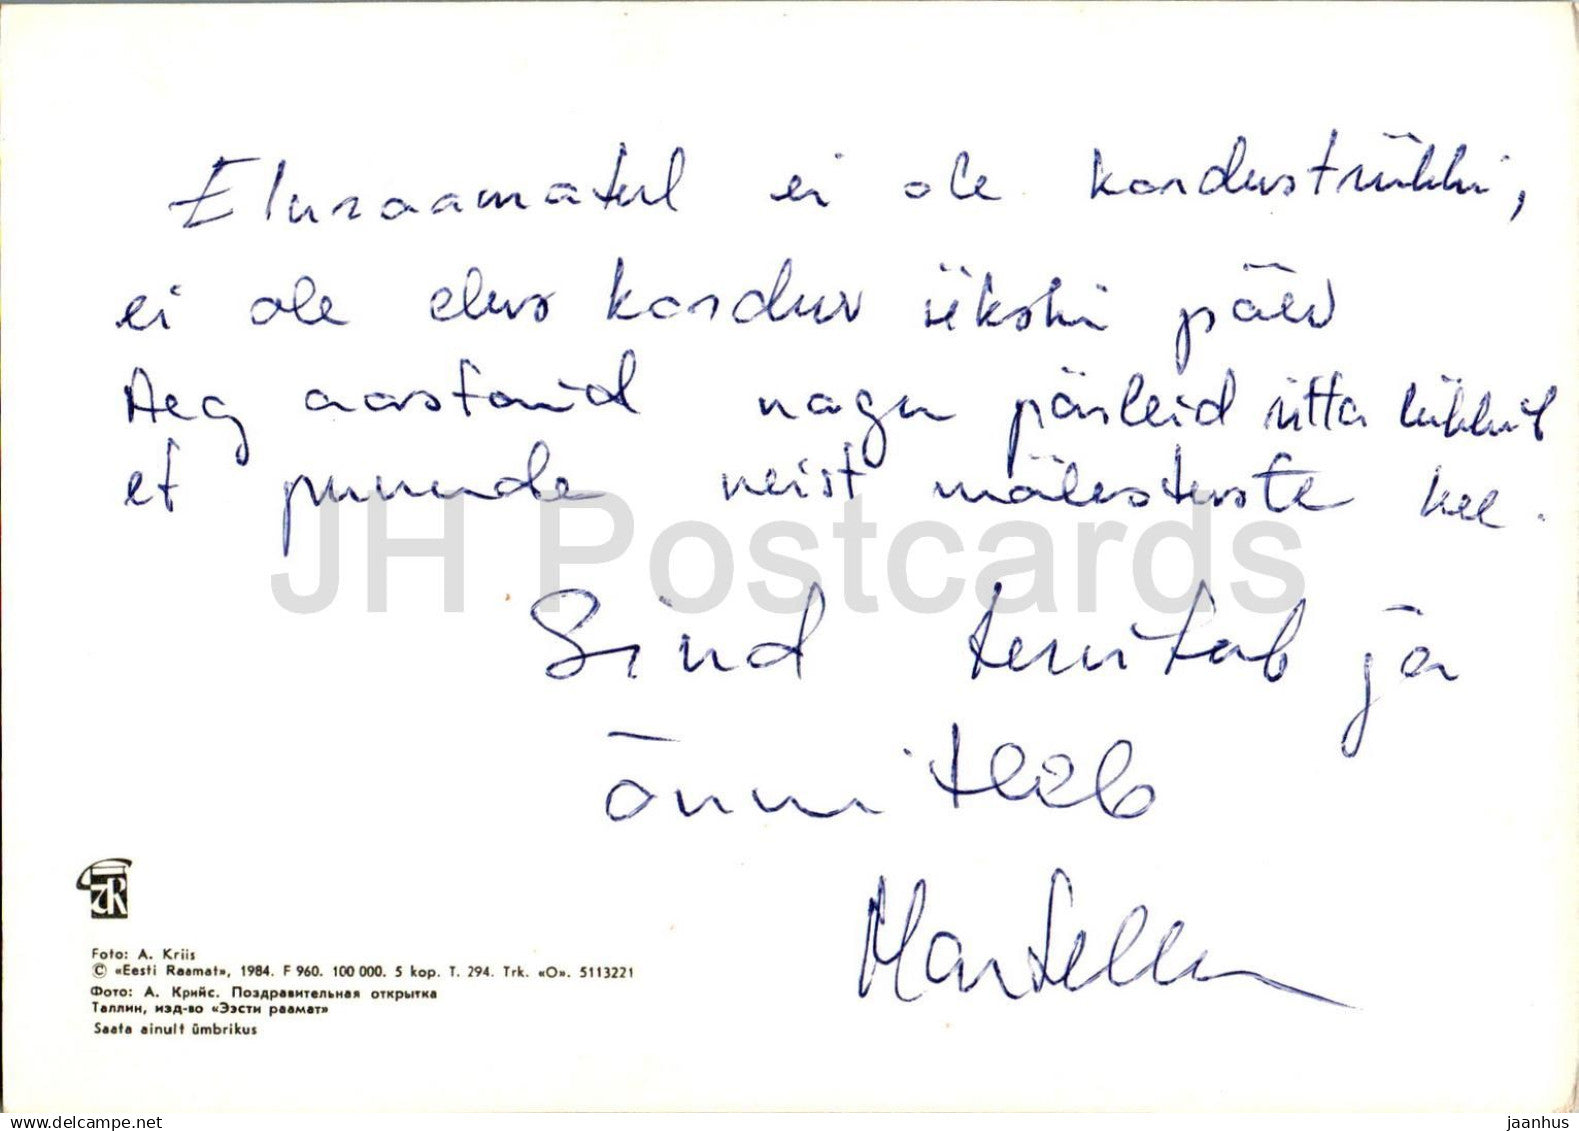 Eluraamatul ei ole kordustrükki,
ei ole elus korduv ükski päev
Aeg aastaid nagu pärleid ritta lükkib
et punuda neist mälestuste kee.
Sind tervitab ja
õnnitleb
JH Postcards
Foto: A. Kriis
© «Eesti Raamat», 1984. F 960. 100 000. 5 kop. T. 294. Trk. «O». 5113221
Фото: А. Крийс. Поздравительная открытка
Таллин, изд-во «Ээсти раамат»
Saata ainult ümbrikus
www.delcampe.net
jaanhus